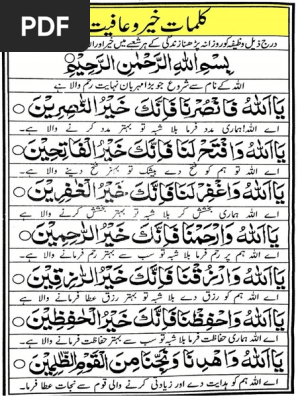 PDF
کلمات خیر و عافیت
درج ذیل وظیفہ کو روزانہ پڑھنا زندگی کے ہر شعبے میں خیر اور
بِسْمِ اللهِ الرَّحْمٰنِ الرَّحِيْمِ
اللہ کے نام سے شروع جو بڑا مہربان نہایت رحم والا ہے
يَا اَللهُ فَانْصُرْنَا فَاِنَّكَ خَيْرُ النّٰصِرِيْنَ
اے اللہ! ہماری مدد فرما بلا شبہ تو بہتر مدد کرنے والا ہے۔
يَا اَللهُ وَافْتَحْ لَنَا فَاِنَّكَ خَيْرُ الْفَاتِحِيْنَ
اے اللہ تو ہم کو فتح دے بیشک تو بہتر فتح دینے والا ہے۔
يَا اَللهُ وَاغْفِرْ لَنَا فَاِنَّكَ خَيْرُ الْغٰفِرِيْنَ
اے اللہ ہماری بخشش کر بلا شبہ تو بہتر بخشش کرنے والا ہے
يَا اَللهُ وَارْحَمْنَا فَاِنَّكَ خَيْرُ الرّٰحِمِيْنَ
اے اللہ ہم پر رحم فرما بلا شبہ تو سب سے بہتر رحم فرمانے والا ہے۔
يَا اَللهُ وَارْزُقْنَا فَاِنَّكَ خَيْرُ الرّٰزِقِيْنَ
اے اللہ ہم کو رزق دے بلا شبہ تو بہتر رزق عطا فرمانے والا ہے
يَا اَللهُ وَاحْفِظْنَا فَاِنَّكَ خَيْرُ الْحٰفِظِيْنَ
اے اللہ ہماری حفاظت فرما بلا شبہ تو سب سے بہتر حفاظت فرمانے والا ہے۔
يَا اَللهُ وَاهْدِنَا وَنَجِّنَا مِنَ الْقَوْمِ الظّٰلِمِيْنَ
اے اللہ ہم کو ہدایت دے اور زیادتی کرنے والی قوم سے نجات عطا فرما۔